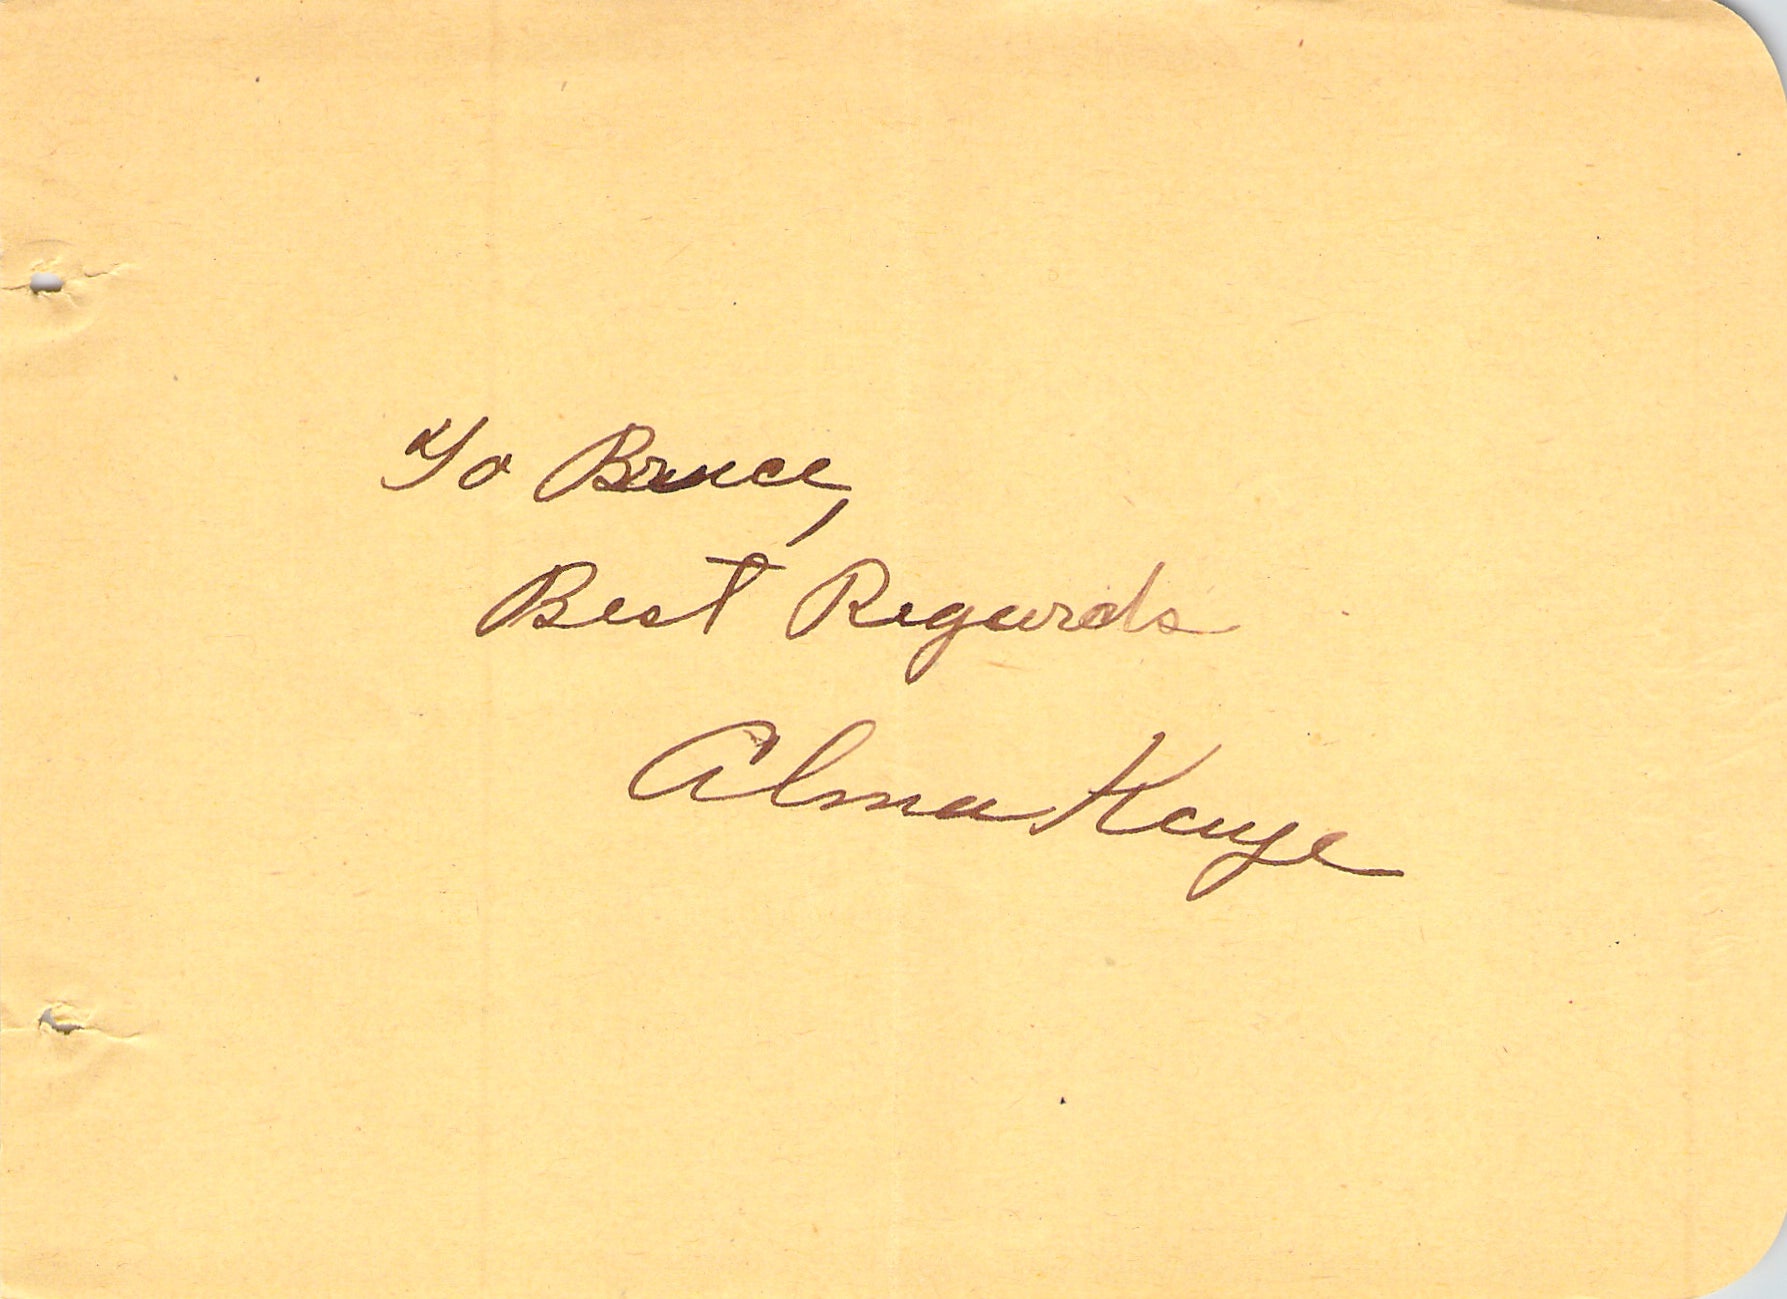 To Bruce,
Best Regards
Alma Kaye